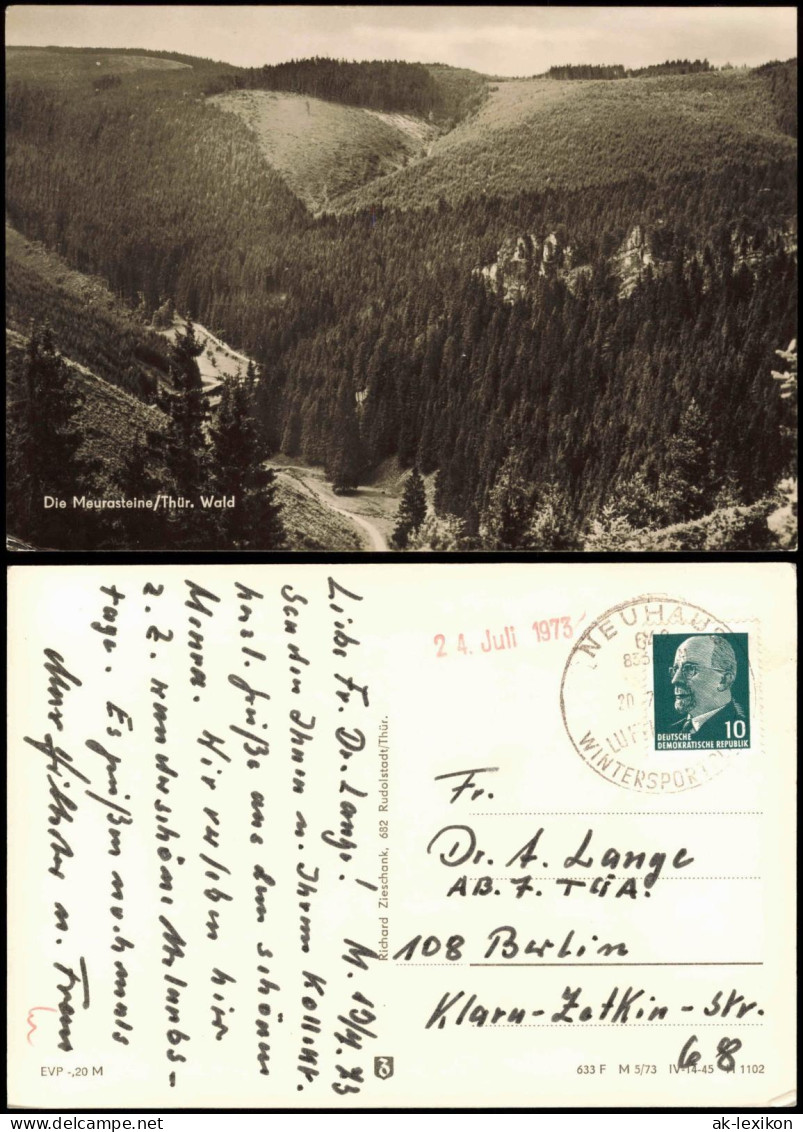 Die Meurasteine/Thür. Wald
Liebe Fr. Dr. Lange! M. 19/7. 73
Senden Ihnen u. Ihrem Kollekt.
herzl. Grüße aus dem schönen
Meura. Wir erleben hier
z. Z. wunderschöne Urlaubs-
tage. Es grüßen nochmals
u. Frau
Richard Zieschank, 682 Rudolstadt/Thür.
EVP -,20 M
24. Juli 1973
NEUHAUS
WINTERSPORT
10
DEUTSCHE
DEMOKRATISCHE REPUBLIK
Fr.
Dr. A. Lange
108 Berlin
Klara-Zetkin-Str.
68
633 F M 5/73 IV-14-45 H 1102
ak-lexikon